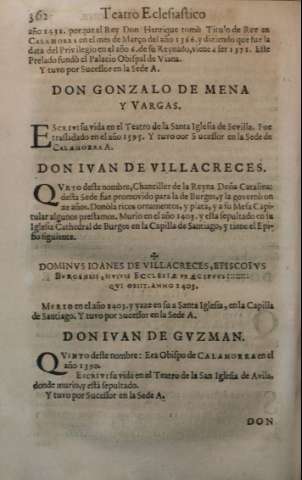 362 Teatro Eclesiastico
año 1431. porque el Rey Don Henrique tomò Titulo de Rey en
CALAHORRA en el mes de Março del año 1366. y diziendo que fue la
data del Privilegio en el año 6. de su Reynado, viene a ser 1371. Este
Prelado fundò el Palacio Obispal de Viana.
Y tuvo por Sucessor en la Sede A.
DON GONZALO DE MENA
Y VARGAS.
ESCRIVI su vida en el Teatro de la Santa Iglesia de Sevilla. Fue
trasladado en el año 1393. Y tuvo por Sucessor en la Sede de
CALAHORRA A.
DON IVAN DE VILLACRECES.
QVINTO deste nombre, Chanciller de la Reyna Doña Catalina:
desta Sede fue promovido para la de Burgos, y la governò en
ze años. Donòla ricos ornamentos, y plata, y a su Mesa Capi-
tular algunos prestamos. Murio en el año 1403. y està sepultado en su
Iglesia Cathedral de Burgos en la Capilla de Santiago, y tiene el Epi-
siguiente.
DOMINVS IOANES DE VILLACRECES, EPISCOPVS
BURGENSIS, ECCLESIÆ
QVI OBIIT. ANNO 1403.
MVRIO en el año 1403. y yaze en su Santa Iglesia, en la Capilla
de Santiago. Y tuvo por Sucessor en la Sede A.
DON IVAN DE GVZMAN.
QVINTO deste nombre: Era Obispo de CALAHORRA en el
año 1390.
ESCRIVI su vida en el Teatro de la San Iglesia de Avila,
donde murio, y està sepultado.
Y tuvo por Sucessor en la Sede A.
DON